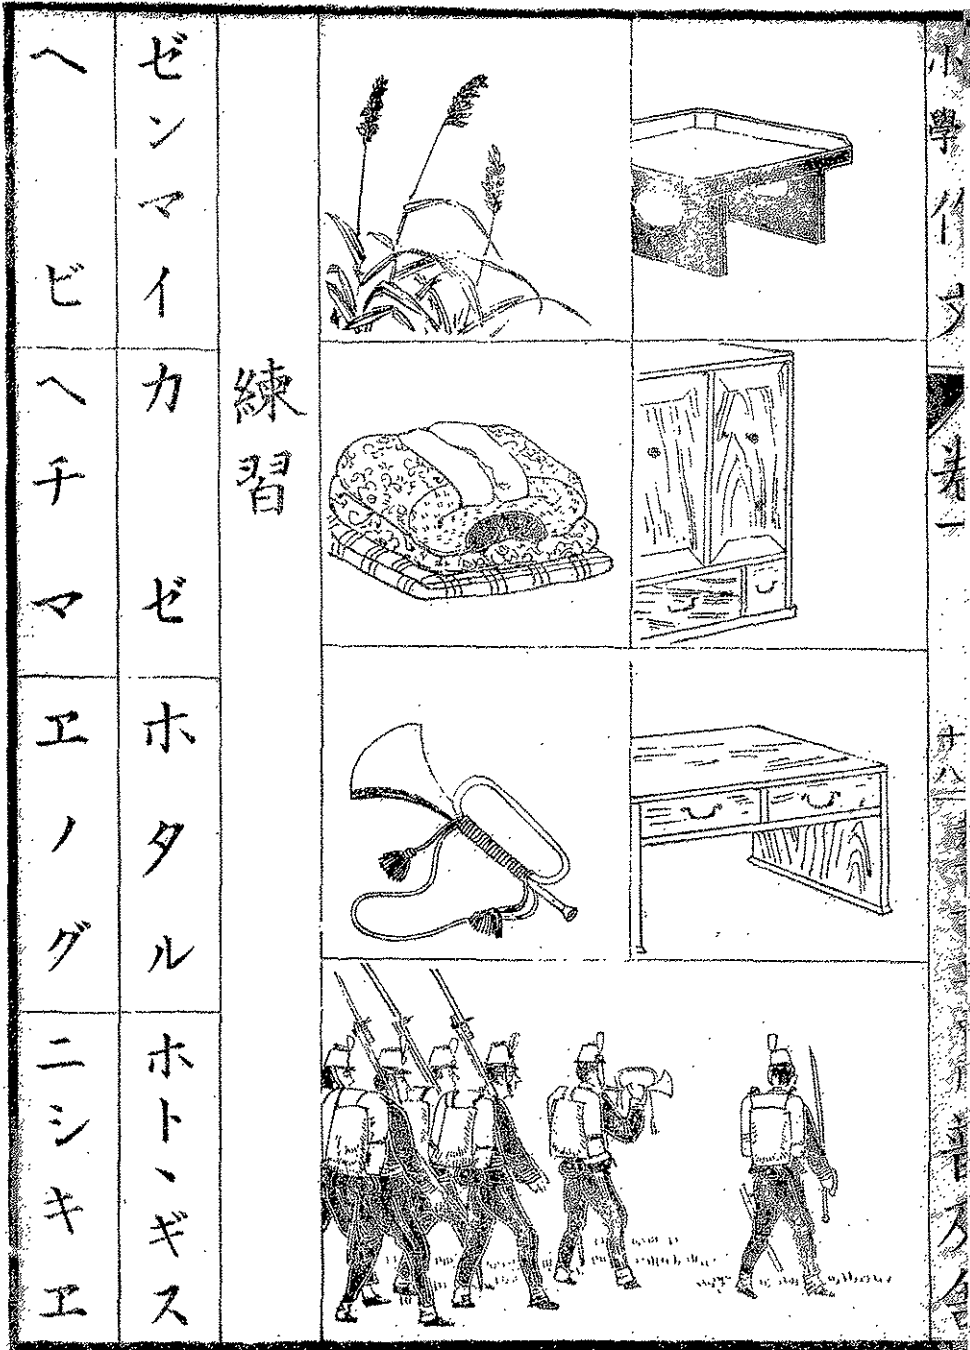 小學作文 巻一
十八
練習
ゼンマイ
カゼ
ホタル
ホトヽギス
ヘビ
ヘチマ
ヱノグ
ニシキヱ